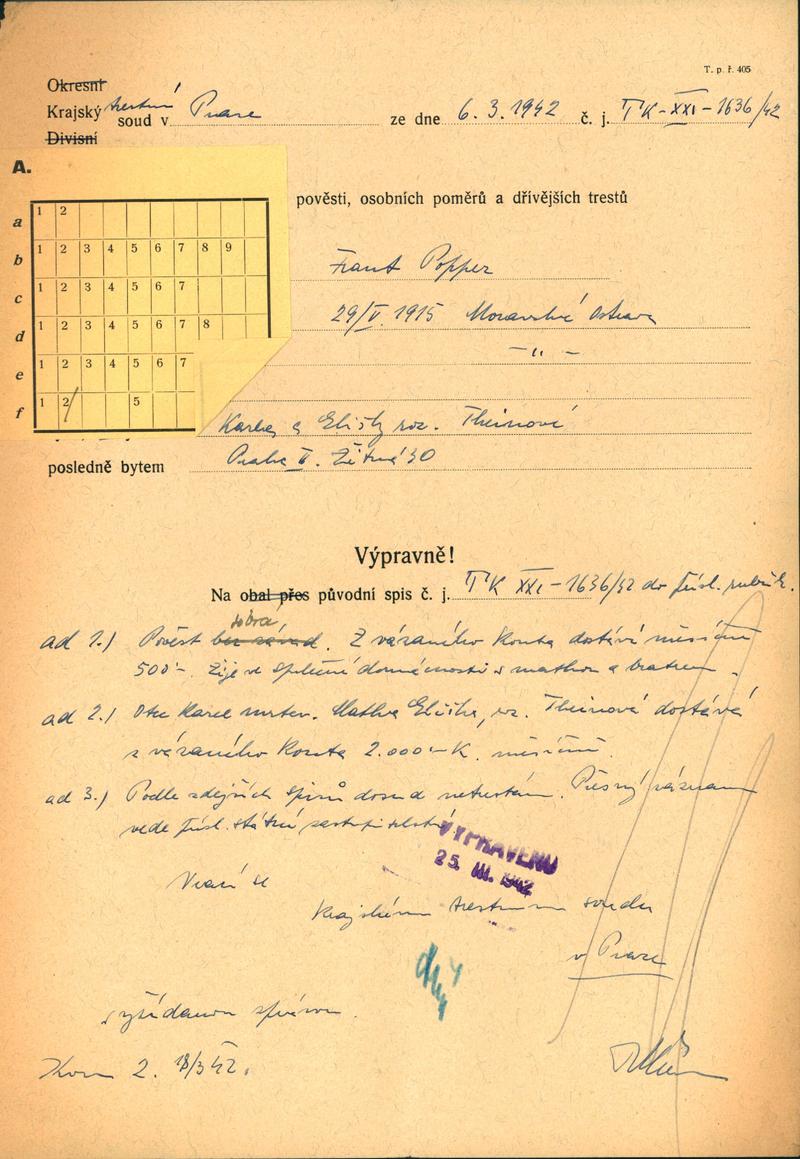 T. p. ř. 405
Okresní
Krajský trestní soud v Praze ze dne 6. 3. 1942 č. j. TK-XXI-1636/42
Divisní
A.
pověsti, osobních poměrů a dřívějších trestů
a 1 2
b 1 2 3 4 5 6 7 8 9
c 1 2 3 4 5 6 7
d 1 2 3 4 5 6 7 8
e 1 2 3 4 5 6 7
f 1 2 5
Frant Popper
29/V. 1915 Moravská Ostrava
— „ —
Karla a Elišky roz. Theinové
posledně bytem Praha II. Žitná 30
Výpravně!
Na obal přes původní spis č. j. TK XXI-1636/42 do přísl. rubrik.
dobrá
ad 1.) Pověst bez závad. Z vázaného konta dostává měsíčně
500'-. Žije ve společné domácnosti s matkou a bratrem.
ad 2.) Otec Karel mrtev. Matka Eliška, roz. Theinová dostává
z vázaného konta 2.000'-K. měsíčně.
ad 3.) Podle zdejších spisů dosud netrestán. Přesný záznam
vede přísl. státní zastupitelství.
VYPRAVENO
25. III. 1942
Vrací se
krajskému trestnímu soudu
v Praze
s vyžádanou zprávou.
2. 18/3 42.